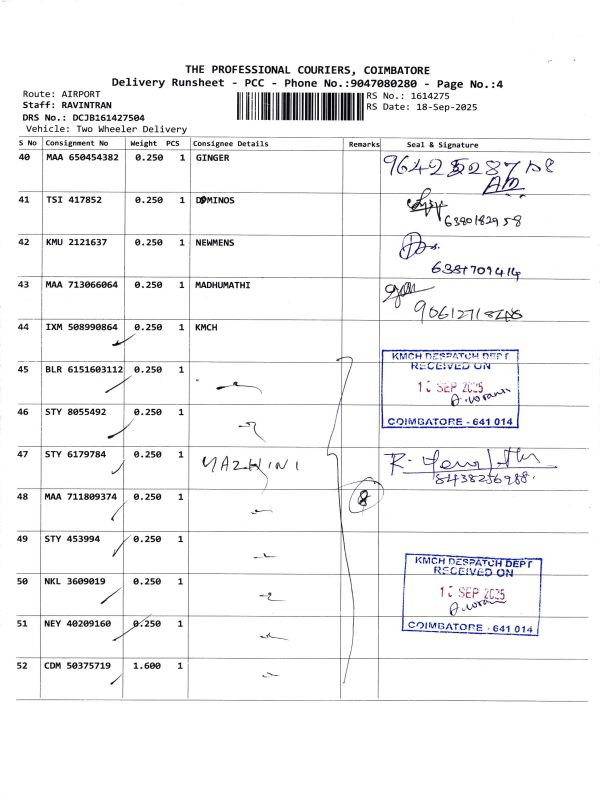 THE PROFESSIONAL COURIERS, COIMBATORE
Delivery Runsheet - PCC - Phone No.:9047080280 - Page No.:4
Route: AIRPORT
Staff: RAVINTRAN
DRS No.: DCJB161427504
Vehicle: Two Wheeler Delivery
RS No.: 1614275
RS Date: 18-Sep-2025
S No Consignment No Weight PCS Consignee Details Remarks Seal & Signature
40 MAA 650454382 0.250 1 GINGER
41 TSI 417852 0.250 1 DOMINOS
6380182958
42 KMU 2121637 0.250 1 NEWMENS
6381709414
43 MAA 713066064 0.250 1 MADHUMATHI
44 IXM 508990864 0.250 1 KMCH
45 BLR 6151603112 0.250 1
KMCH DESPATCH DEPT
RECEIVED ON
SEP 2025
COIMBATORE - 641 014
46 STY 8055492 0.250 1
47 STY 6179784 0.250 1 YAZHINI
8438256988.
48 MAA 711809374 0.250 1 8
49 STY 453994 0.250 1
50 NKL 3609019 0.250 1
KMCH DESPATCH DEPT
RECEIVED ON
SEP 2025
COIMBATORE - 641 014
51 NEY 40209160 0.250 1
52 CDM 50375719 1.600 1